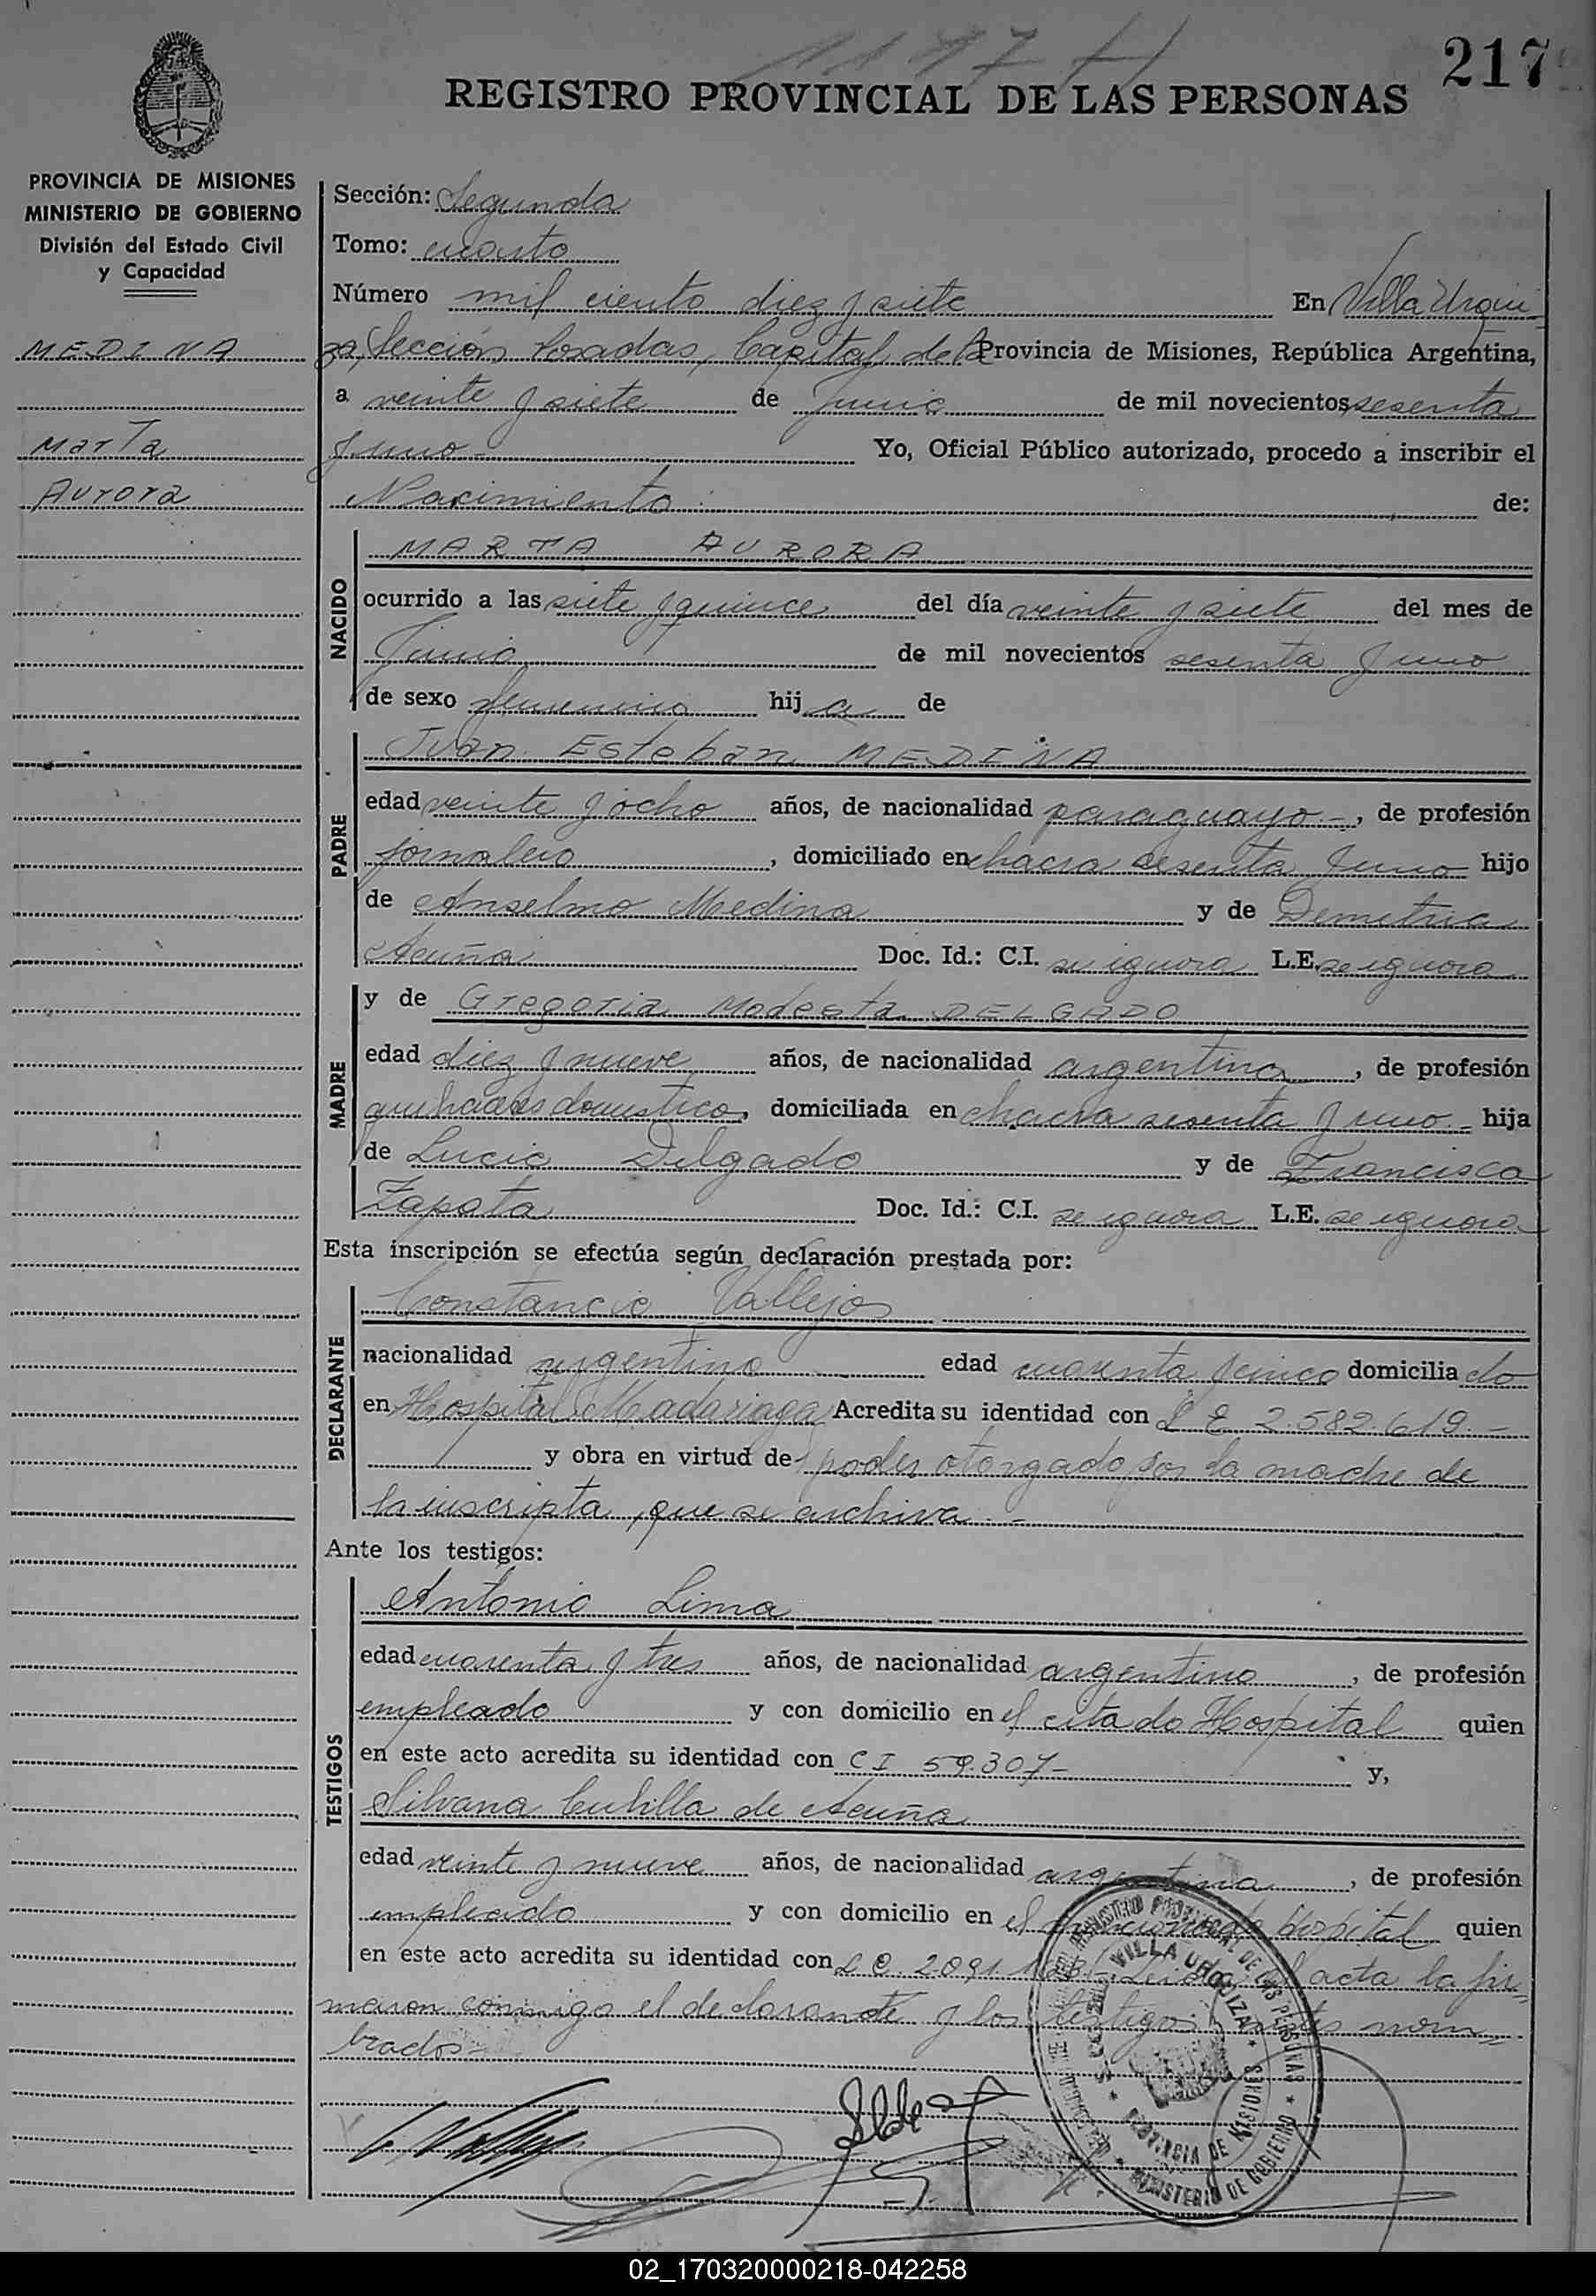 1117
217
REGISTRO PROVINCIAL DE LAS PERSONAS
PROVINCIA DE MISIONES
MINISTERIO DE GOBIERNO
División del Estado Civil
y Capacidad
MEDINA
Marta
Aurora
Sección: Segunda
Tomo: cuarto
Número mil ciento diez y siete En Villa Urqui-
za, Sección Posadas, Capital de la Provincia de Misiones, República Argentina,
a veinte y siete de Junio de mil novecientos sesenta
y uno- Yo, Oficial Público autorizado, procedo a inscribir el
Nacimiento: de:
NACIDO
MARTA AURORA
ocurrido a las siete y quince del día veinte y siete del mes de
Junio de mil novecientos sesenta y uno
de sexo femenino hij a de
PADRE
Juan Esteban MEDINA
edad veinte y ocho años, de nacionalidad paraguayo-, de profesión
jornalero, domiciliado en chacra sesenta y uno hijo
de Anselmo Medina y de Demetria
Acuña Doc. Id.: C.I. se ignora L.E. se ignora
MADRE
y de Gregoria Modesta DELGADO
edad diez y nueve años, de nacionalidad argentina, de profesión
quehaceres domestico, domiciliada en chacra sesenta y uno.- hija
de Lucio Delgado y de Francisca
Zapata Doc. Id.: C.I. se ignora L.E. se ignora
Esta inscripción se efectúa según declaración prestada por:
DECLARANTE
Constancio Vallejos
nacionalidad argentino edad cuarenta y cinco domicilia do
en Hospital Madariaga Acredita su identidad con L E 2.582.619.-
y obra en virtud de poder otorgado por la madre de
la inscripta, que se archiva.-
Ante los testigos:
TESTIGOS
Antonio Lima
edad cuarenta y tres años, de nacionalidad argentino, de profesión
empleado y con domicilio en el citado Hospital quien
en este acto acredita su identidad con C I 59.307- y,
Silvana de Acuña
edad veinte y nueve años, de nacionalidad argentina, de profesión
empleado y con domicilio en el mencionado hospital quien
en este acto acredita su identidad con L C. 2.091. Leida el acta la fir-
maron conmigo el declarante y los testigos antes nom-
brados-
REGISTRO PROVINCIAL DE LAS PERSONAS
VILLA URQUIZA
PROVINCIA DE MISIONES
MINISTERIO DE GOBIERNO
02_170320000218-042258